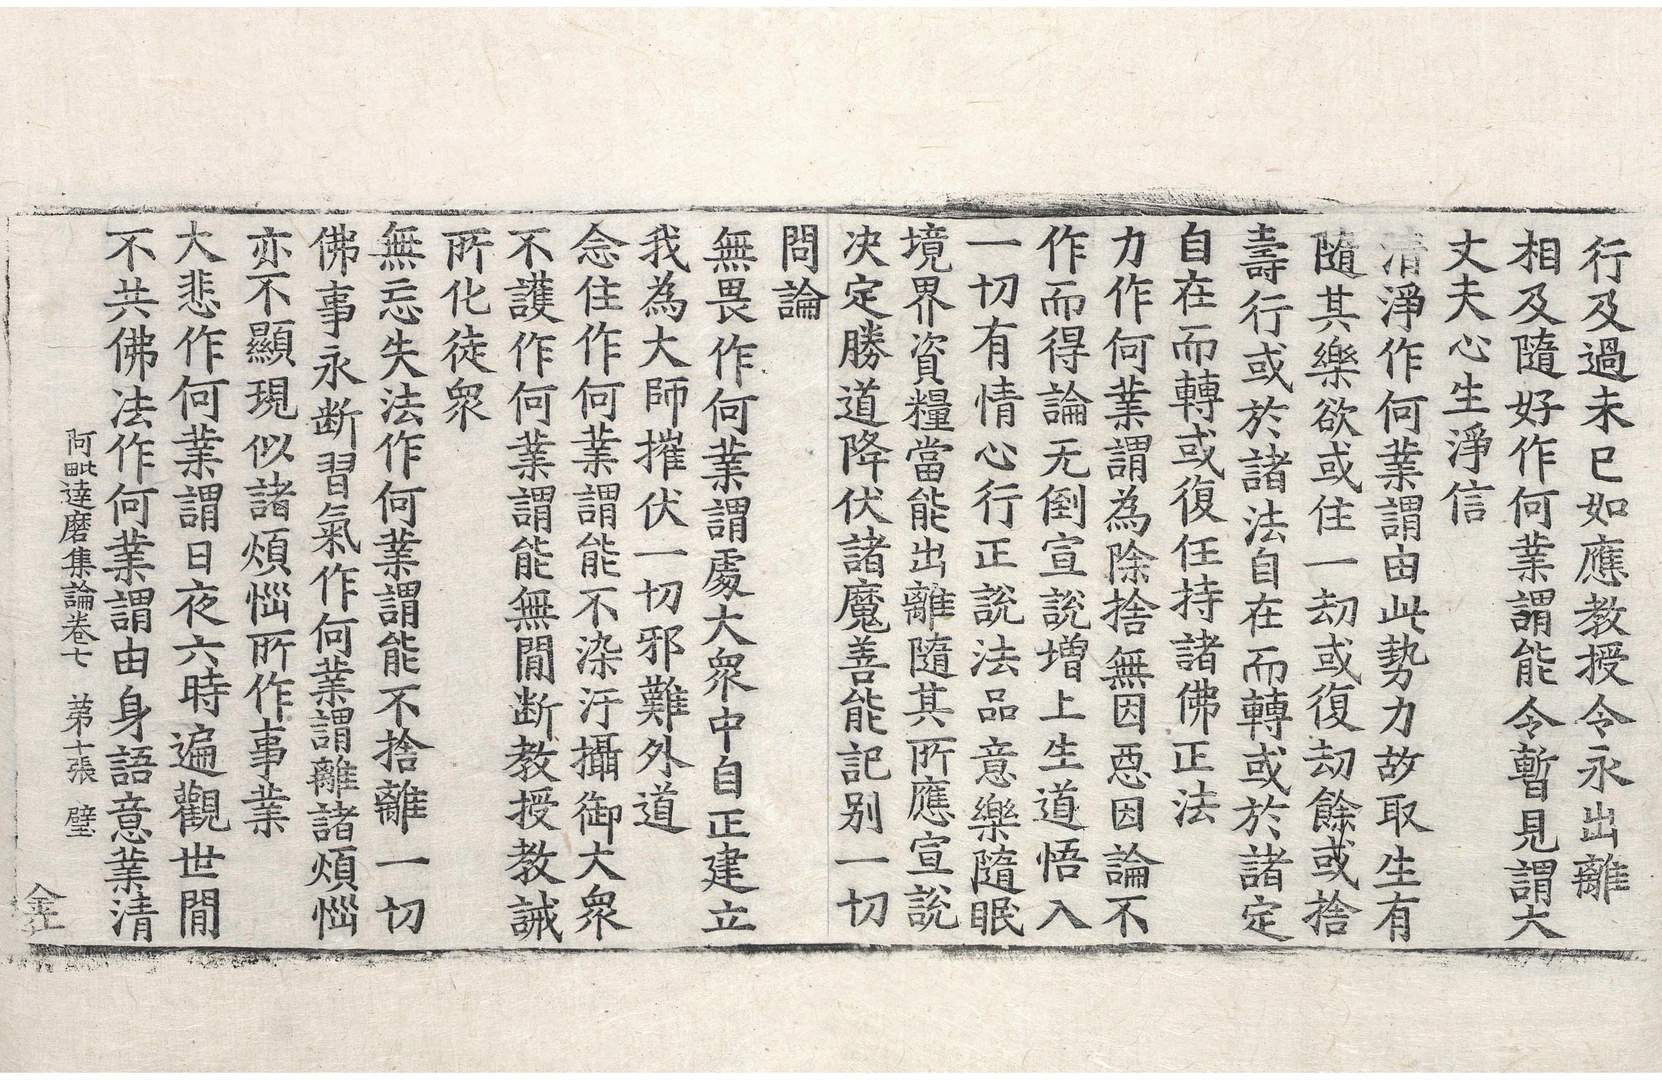 行及過未已如應教授令永出離
相及隨好作何業謂能令暫見謂大
丈夫心生淨信
清淨作何業謂由此勢力故取生有
隨其樂欲或住一劫或復劫餘或捨
壽行或於諸法自在而轉或於諸定
自在而轉或復任持諸佛正法
力作何業謂為除捨無因惡因論不
作而得論无倒宣說增上生道悟入
一切有情心行正說法品意樂隨眠
境界資糧當能出離隨其所應宣說
决定勝道降伏諸魔善能記別一切
問論
無畏作何業謂處大衆中自正建立
我為大師摧伏一切邪難外道
念住作何業謂能不染汙攝御大衆
不護作何業謂能無閒断教授教誡
所化徒衆
無忘失法作何業謂能不捨離一切
佛事永断習氣作何業謂離諸煩惱
亦不顯現似諸煩惱所作事業
大悲作何業謂日夜六時遍觀世閒
不共佛法作何業謂由身語意業清
阿毗達磨集論卷七 第十張 璧